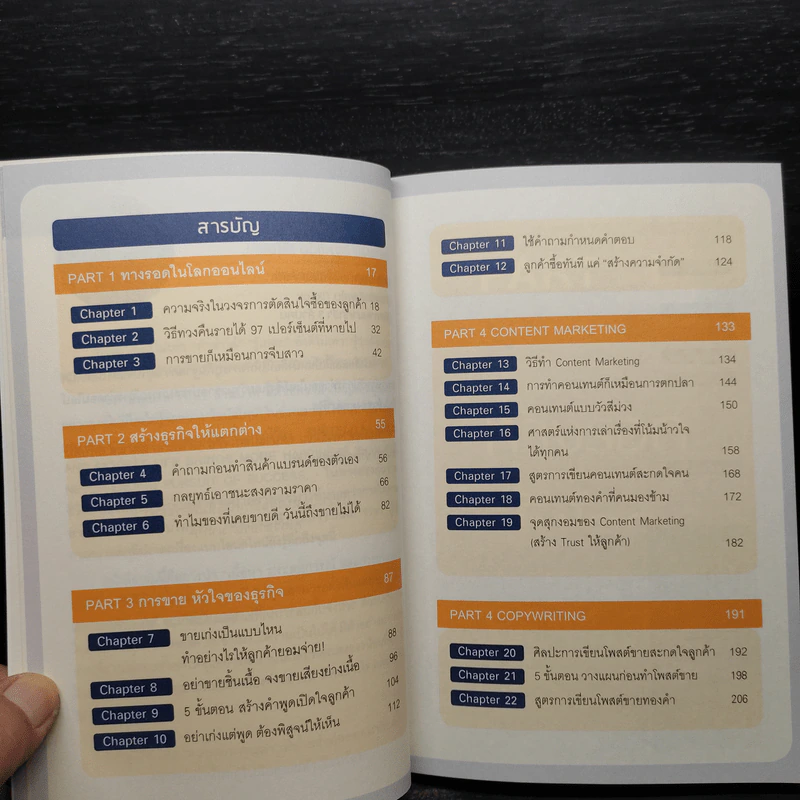 สารบัญ
PART 1 ทางรอดในโลกออนไลน์ 17
Chapter 1 ความจริงในวงจรการตัดสินใจซื้อของลูกค้า 18
Chapter 2 วิธีทวงคืนรายได้ 97 เปอร์เซ็นต์ที่หายไป 32
Chapter 3 การขายก็เหมือนการจีบสาว 42
PART 2 สร้างธุรกิจให้แตกต่าง 55
Chapter 4 คำถามก่อนทำสินค้าแบรนด์ของตัวเอง 56
Chapter 5 กลยุทธ์เอาชนะสงครามราคา 66
Chapter 6 ทำไมของที่เคยขายดี วันนี้ถึงขายไม่ได้ 82
PART 3 การขาย หัวใจของธุรกิจ 87
Chapter 7 ขายเก่งเป็นแบบไหน
ทำอย่างไรให้ลูกค้ายอมจ่าย! 88
Chapter 8 อย่าขายชิ้นเนื้อ จงขายเสียงย่างเนื้อ 96
Chapter 9 5 ขั้นตอน สร้างคำพูดเปิดใจลูกค้า 104
Chapter 10 อย่าเก่งแต่พูด ต้องพิสูจน์ให้เห็น 112
Chapter 11 ใช้คำถามกำหนดคำตอบ 118
Chapter 12 ลูกค้าซื้อทันที แค่ "สร้างความจำกัด" 124
PART 4 CONTENT MARKETING 133
Chapter 13 วิธีทำ Content Marketing 134
Chapter 14 การทำคอนเทนต์ก็เหมือนการตกปลา 144
Chapter 15 คอนเทนต์แบบวัวสีม่วง 150
Chapter 16 ศาสตร์แห่งการเล่าเรื่องที่โน้มน้าวใจ
ได้ทุกคน 158
Chapter 17 สูตรการเขียนคอนเทนต์สะกดใจคน 168
Chapter 18 คอนเทนต์ทองคำที่คนมองข้าม 172
Chapter 19 จุดสุกงอมของ Content Marketing
(สร้าง Trust ให้ลูกค้า) 182
PART 4 COPYWRITING 191
Chapter 20 ศิลปะการเขียนโพสต์ขายสะกดใจลูกค้า 192
Chapter 21 5 ขั้นตอน วางแผนก่อนทำโพสต์ขาย 198
Chapter 22 สูตรการเขียนโพสต์ขายทองคำ 206